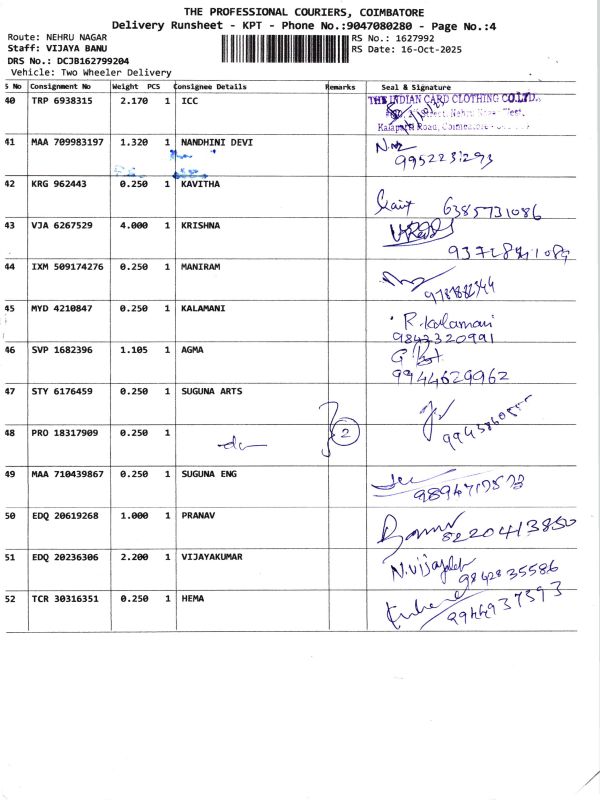 THE PROFESSIONAL COURIERS, COIMBATORE
Delivery Runsheet - KPT - Phone No.:9047080280 - Page No.:4
Route: NEHRU NAGAR RS No.: 1627992
Staff: VIJAYA BANU RS Date: 16-Oct-2025
DRS No.: DCJB162799204
Vehicle: Two Wheeler Delivery
S No Consignment No Weight PCS Consignee Details Remarks Seal & Signature
40 TRP 6938315 2.170 1 ICC THE INDIAN CARD CLOTHING CO.LTD.,
41 MAA 709983197 1.320 1 NANDHINI DEVI
9952231293
42 KRG 962443 0.250 1 KAVITHA
6385731086
43 VJA 6267529 4.000 1 KRISHNA
44 IXM 509174276 0.250 1 MANIRAM
45 MYD 4210847 0.250 1 KALAMANI R. Kalamani
9843320991
46 SVP 1682396 1.105 1 AGMA
9944629962
47 STY 6176459 0.250 1 SUGUNA ARTS
48 PRO 18317909 0.250 1 2
49 MAA 710439867 0.250 1 SUGUNA ENG
50 EDQ 20619268 1.000 1 PRANAV
8220413850
51 EDQ 20236306 2.200 1 VIJAYAKUMAR
9842835586
52 TCR 30316351 0.250 1 HEMA
9944937393